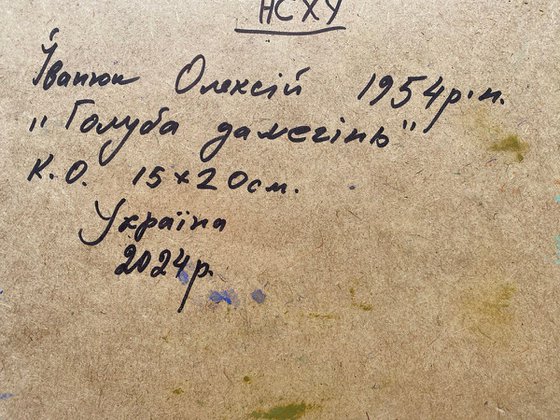 НСХУ
Іванюк Олексій 1954р.н.
"Голуба далегінь"
К.О. 15×20см.
Україна
2024р.